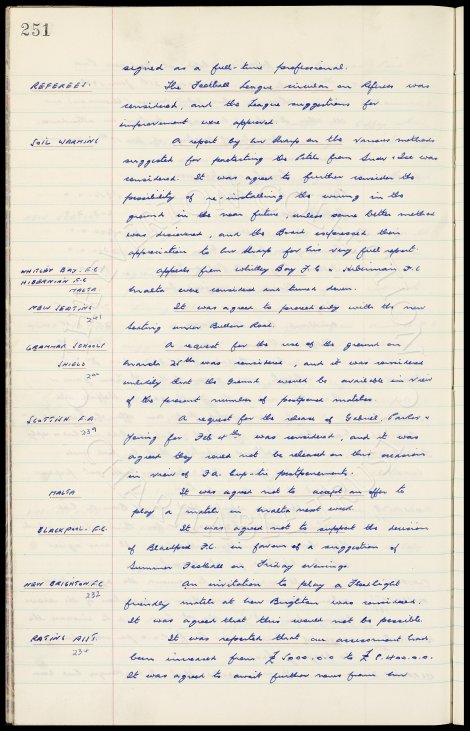 251
signed as a full-time professional.
REFEREES. The Football League circular on Referees was
considered, and the League suggestions for
improvement were approved.
SOIL WARMING A report by Mr Sharp on the various methods
suggested for protecting the Pitch from Snow & Ice was
considered. It was agreed to further consider the
possibility of re-installing the wiring in the
ground in the near future, unless some better method
was discovered, and the Board expressed their
appreciation to Mr Sharp for his very full report.
WHITLEY BAY. F.C. Appeals from Whitley Bay F.C & Hibernian F.C
HIBERNIAN F.C
MALTA Malta were considered and turned down.
NEW SEATING It was agreed to proceed only with the new
241
Seating under Bullens Road.
GRAMMAR SCHOOLS A request for the use of the ground on
SHIELD March 25th was considered, and it was considered
200
unlikely that the Ground would be available in view
of the present number of postponed matches.
SCOTTISH F.A. A request for the release of Gabriel, Parker &
239
Young for Feb 4th was considered, and it was
agreed they could not be released on this occasion
in view of F.A. Cup-tie postponements.
MALTA It was agreed not to accept an offer to
play a match in Malta next week.
BLACKPOOL. F.C. It was agreed not to support the decision
of Blackpool F.C. in favour of a suggestion of
Summer Football on Friday evenings.
NEW BRIGHTON. F.C An invitation to play a Floodlight
232
friendly match at New Brighton was considered.
It was agreed that this would not be possible.
RATING It was reported that our assessment had
been increased from £ 5000.0.0 to £ 8.400.0.0.
It was agreed to await further news from Mr